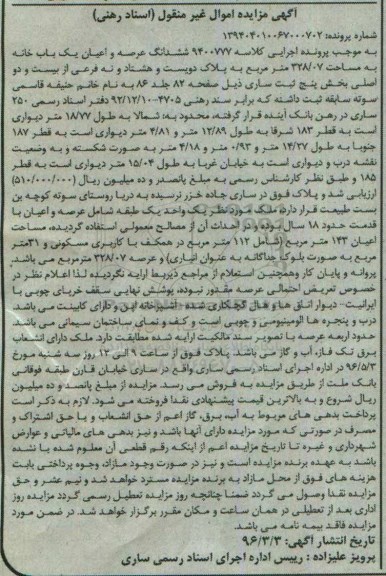 آگهی مزایده اموال غیر منقول (اسناد رهنی)
شماره پرونده: ۱۳۹۴۰۴۰۱۰۰۶۷۰۰۰۷۰۲
به موجب پرونده اجرایی کلاسه ۹۴۰۰۷۷۷ ششدانگ عرصه و اعیان یک باب خانه
به مساحت ۳۲۸/۰۷ متر مربع به پلاک دویست و هشتاد و نه فرعی از بیست و دو
اصلی بخش پنج ثبت ساری ذیل صفحه ۸۲ جلد ۸۶ به نام خانم حنیفه قاسمی
سوته سابقه ثبت داشته که برابر سند رهنی ۴۷۰۵-۹۲/۱۲/۱۰ دفتر اسناد رسمی ۲۵۰
ساری در رهن بانک آینده قرار گرفته، محدود به: شمالا به طول ۱۸/۷۷ متر دیواری
است به قطر ۱۸۳ شرقا به طول ۱۲/۸۹ متر و ۴/۸۱ متر دیواری است به قطر ۱۸۷
جنوبا به طول ۱۴/۲۷ متر و ۰/۹۳ متر و ۴/۱۸ متر به صورت شکسته و به وضعیت
نقشه درب و دیواری است به خیابان غربا به طول ۱۵/۰۴ متر دیواری است به قطر
۱۸۵ و طبق نظر کارشناس رسمی به مبلغ پانصد و ده میلیون ریال (۵۱۰/۰۰۰/۰۰۰)
ارزیابی شد و پلاک فوق در ساری جاده خزر نرسیده به دریا روستای سوته کوچه بن
بست طبیعت قرار دارد، ملک مورد نظر یک واحد یک طبقه شامل عرصه و اعیان با
قدمت حدود ۱۸ سال بوده و در احداث آن از مصالح معمولی استفاده گردیده، مساحت
اعیان ۱۴۳ متر مربع (شامل ۱۱۲ متر مربع در همکف با کاربری مسکونی و ۳۱متر
مربع به صورت بلوک جداگانه به عنوان انباری) و عرصه ۳۲۸/۰۷ مترمربع می باشد.
پروانه و پایان کار وهمچنین استعلام از مراجع ذیربط ارایه نگردیده لذا اعلام نظر در
خصوص تعریض احتمالی عرصه مقدور نبوده، پوشش نهایی سقف خرپای چوبی با
ایرانیت- دیوار اتاق ها و هال گچکاری شده - آشپزخانه اپن و دارای کابینت می باشد
درب و پنجره ها آلومینیومی و چوبی است و کف و نمای ساختمان سیمانی می باشد.
حدود اربعه عرصه با تصویر سند مالکیت ارایه شده مطابقت دارد. ملک دارای انشعاب
برق تک فاز، آب و گاز می باشد. پلاک فوق از ساعت ۹ الی ۱۲ روز سه شنبه مورخ
۹۶/۵/۳ در اداره اجرای اسناد رسمی ساری واقع در ساری خیابان قارن طبقه فوقانی
بانک ملت از طریق مزایده به فروش می رسد. مزایده از مبلغ پانصد و ده میلیون
ریال شروع و به بالاترین قیمت پیشنهادی نقدا فروخته می شود. لازم به ذکر است
پرداخت بدهی های مربوط به آب، برق، گاز اعم از حق انشعاب و یا حق اشتراک و
مصرف در صورتی که مورد مزایده دارای آنها باشد و نیز بدهی های مالیاتی و عوارض
شهرداری و غیره تا تاریخ مزایده اعم از اینکه رقم قطعی آن معلوم شده یا نشده
باشد به عهده برنده مزایده است و نیز در صورت وجود مازاد، وجوه پرداختی بابت
هزینه های فوق از محل مازاد به برنده مزایده مسترد خواهد شد و نیم عشر و حق
مزایده نقدا وصول می گردد ضمنا چنانچه روز مزایده تعطیل رسمی گردد مزایده روز
اداری بعد از تعطیلی در همان ساعت و مکان مقرر برگزار خواهد شد. در ضمن مورد
مزایده فاقد بیمه نامه می باشد.
تاریخ انتشار آگهی: ۹۶/۳/۳
پرویز علیزاده : رییس اداره اجرای اسناد رسمی ساری